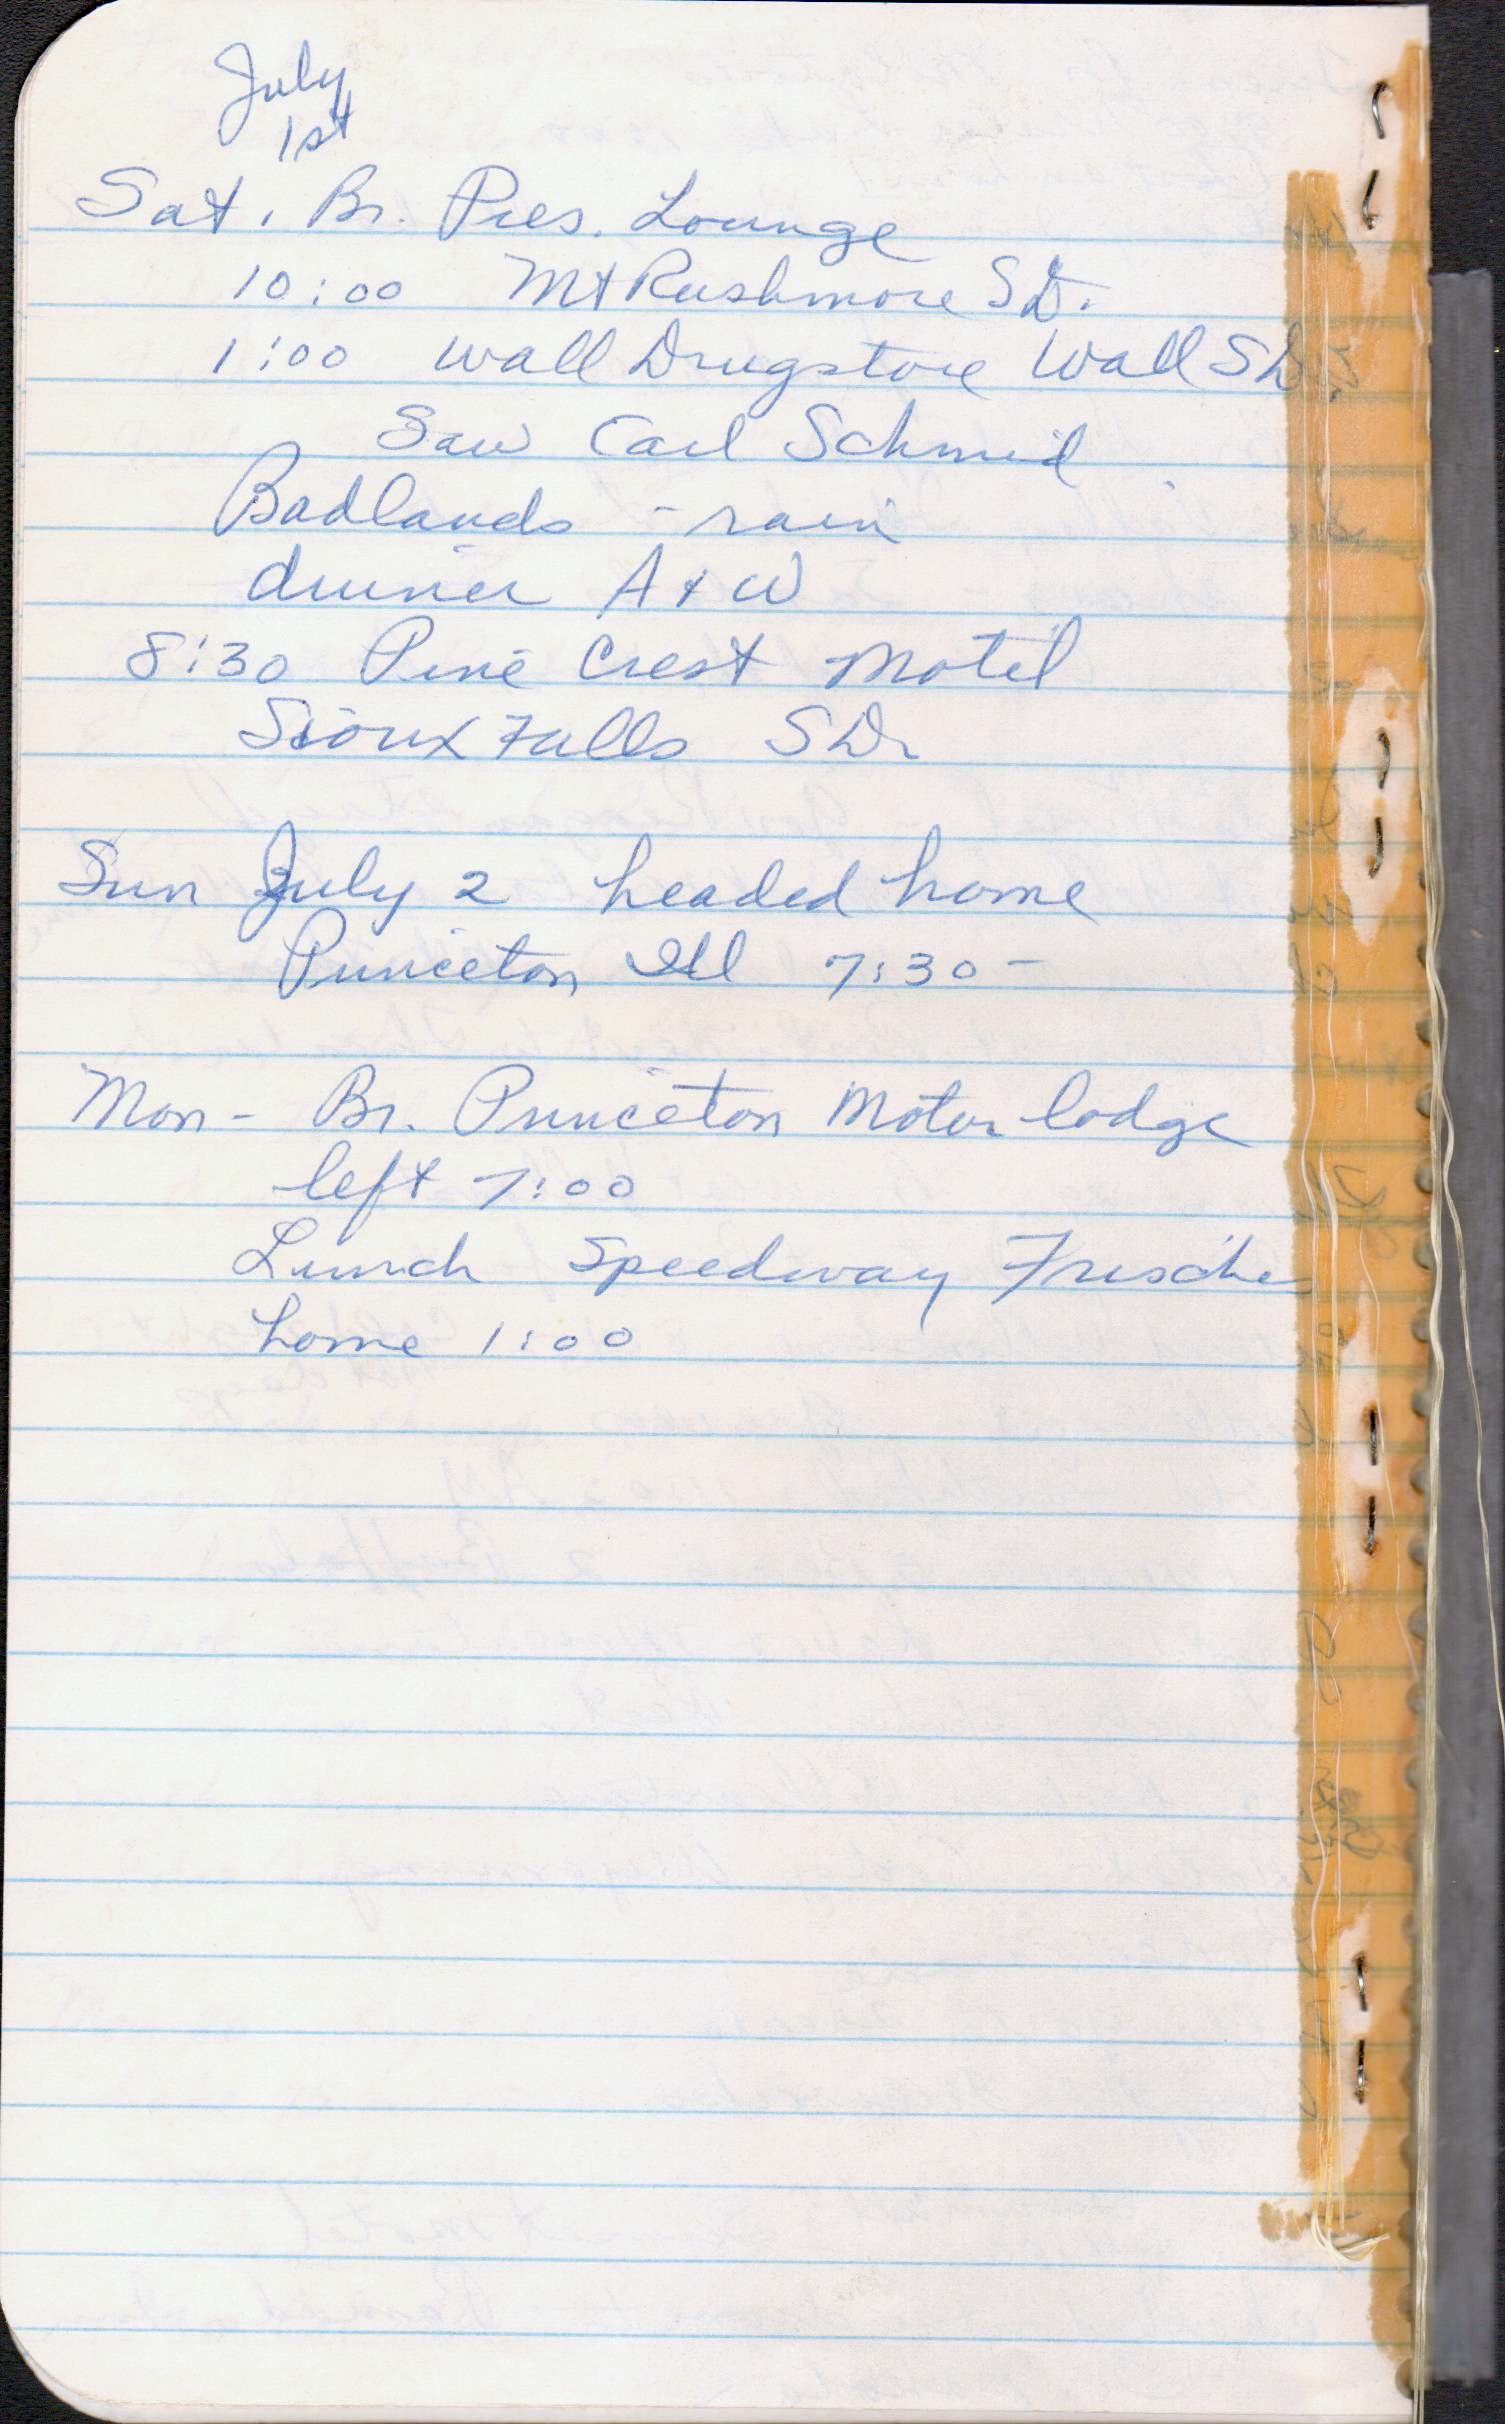 July
1st
Sat. Br. Pres. Lounge
10:00 Mt Rushmore SD.
1:00 Wall Drugstore Wall SD
Saw Carl Schmid
Badlands - rain
dinner A & W
8:30 Pine Crest Motel
Sioux Falls SD.
Sun July 2 headed home
Princeton Ill 7:30 -
Mon - Br. Princeton Motor lodge
left 7:00
Lunch Speedway Frische
home 1:00